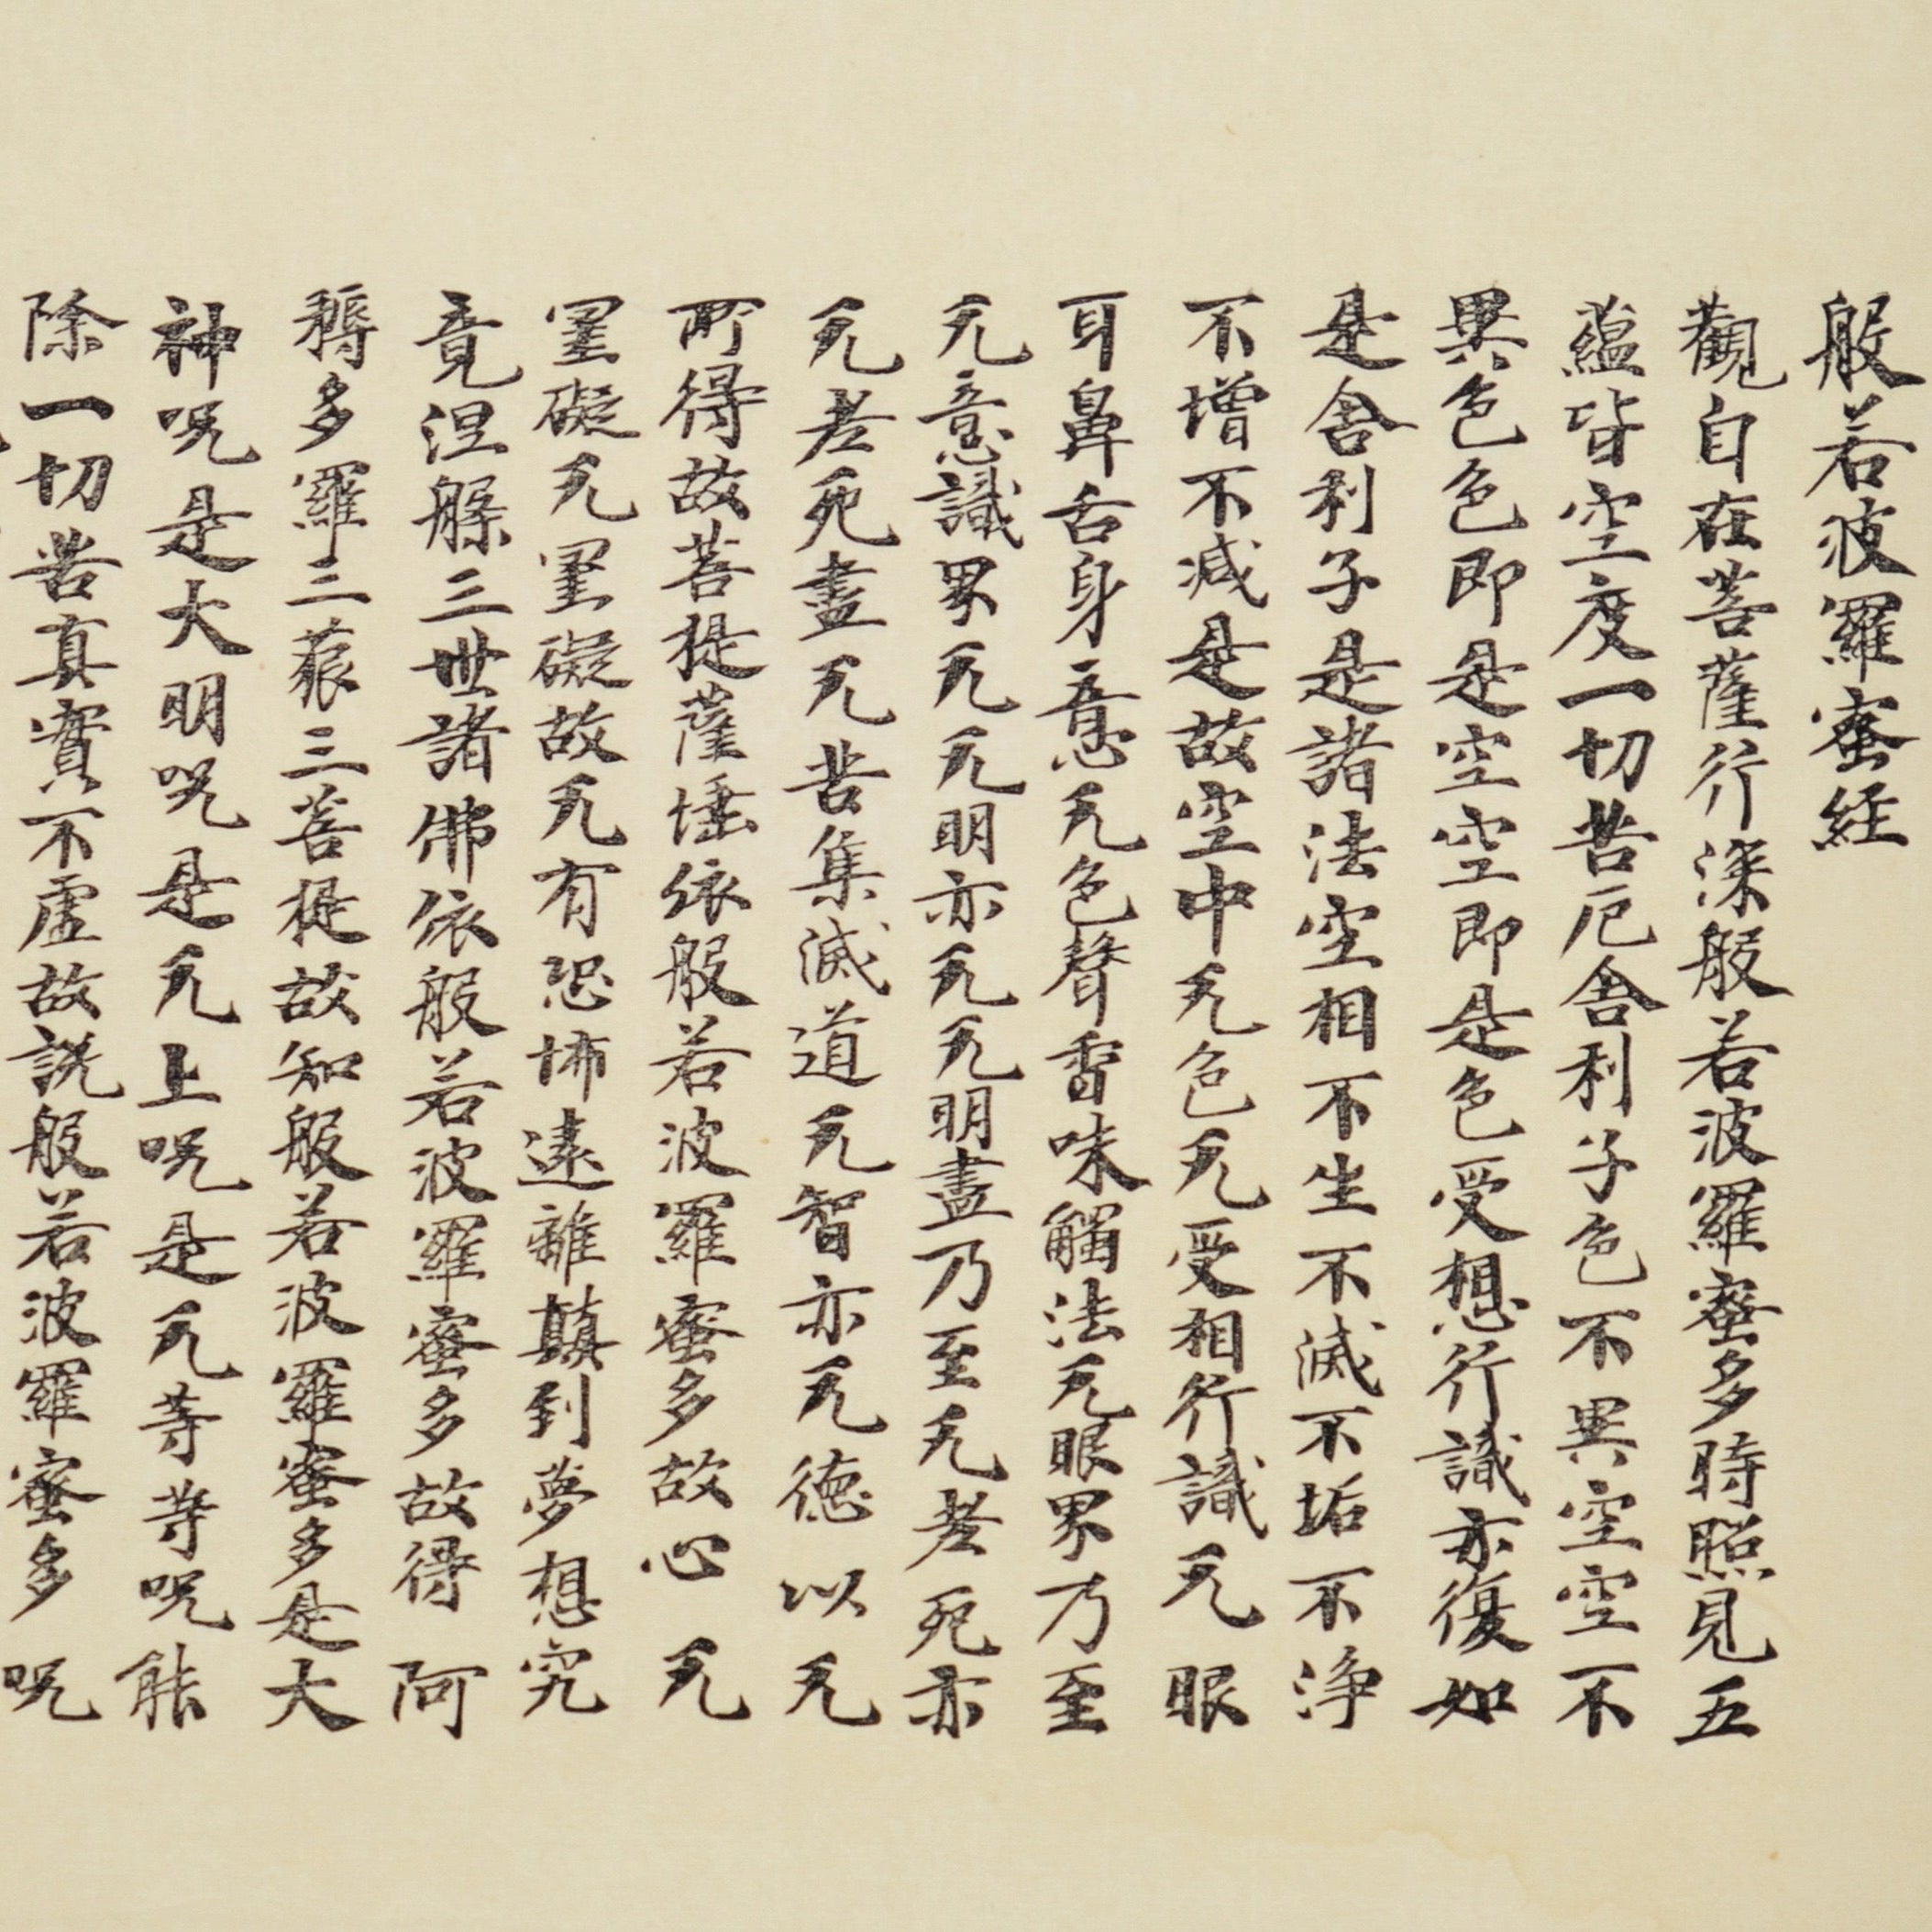 般若波羅蜜經
觀自在菩薩行深般若波羅蜜多時照見五
蘊皆空度一切苦厄舎利子色不異空空不
異色色即是空空即是色受想行識亦復如
是舎利子是諸法空相不生不滅不垢不淨
不增不減是故空中无色无受相行識无眼
耳鼻舌身意无色聲香味觸法无眼界乃至
无意識界无无明亦无无明盡乃至无老死亦
无老死盡无苦集滅道无智亦无德以无
所得故菩提薩埵依般若波羅蜜多故心无
罣礙无罣礙故无有恐怖遠離顛到夢想究
竟涅槃三世諸佛依般若波羅蜜多故得阿
耨多羅三藐三菩提故知般若波羅蜜多是大
神呪是大明呪是无上呪是无等等呪能
除一切苦真實不虛故說般若波羅蜜多呪